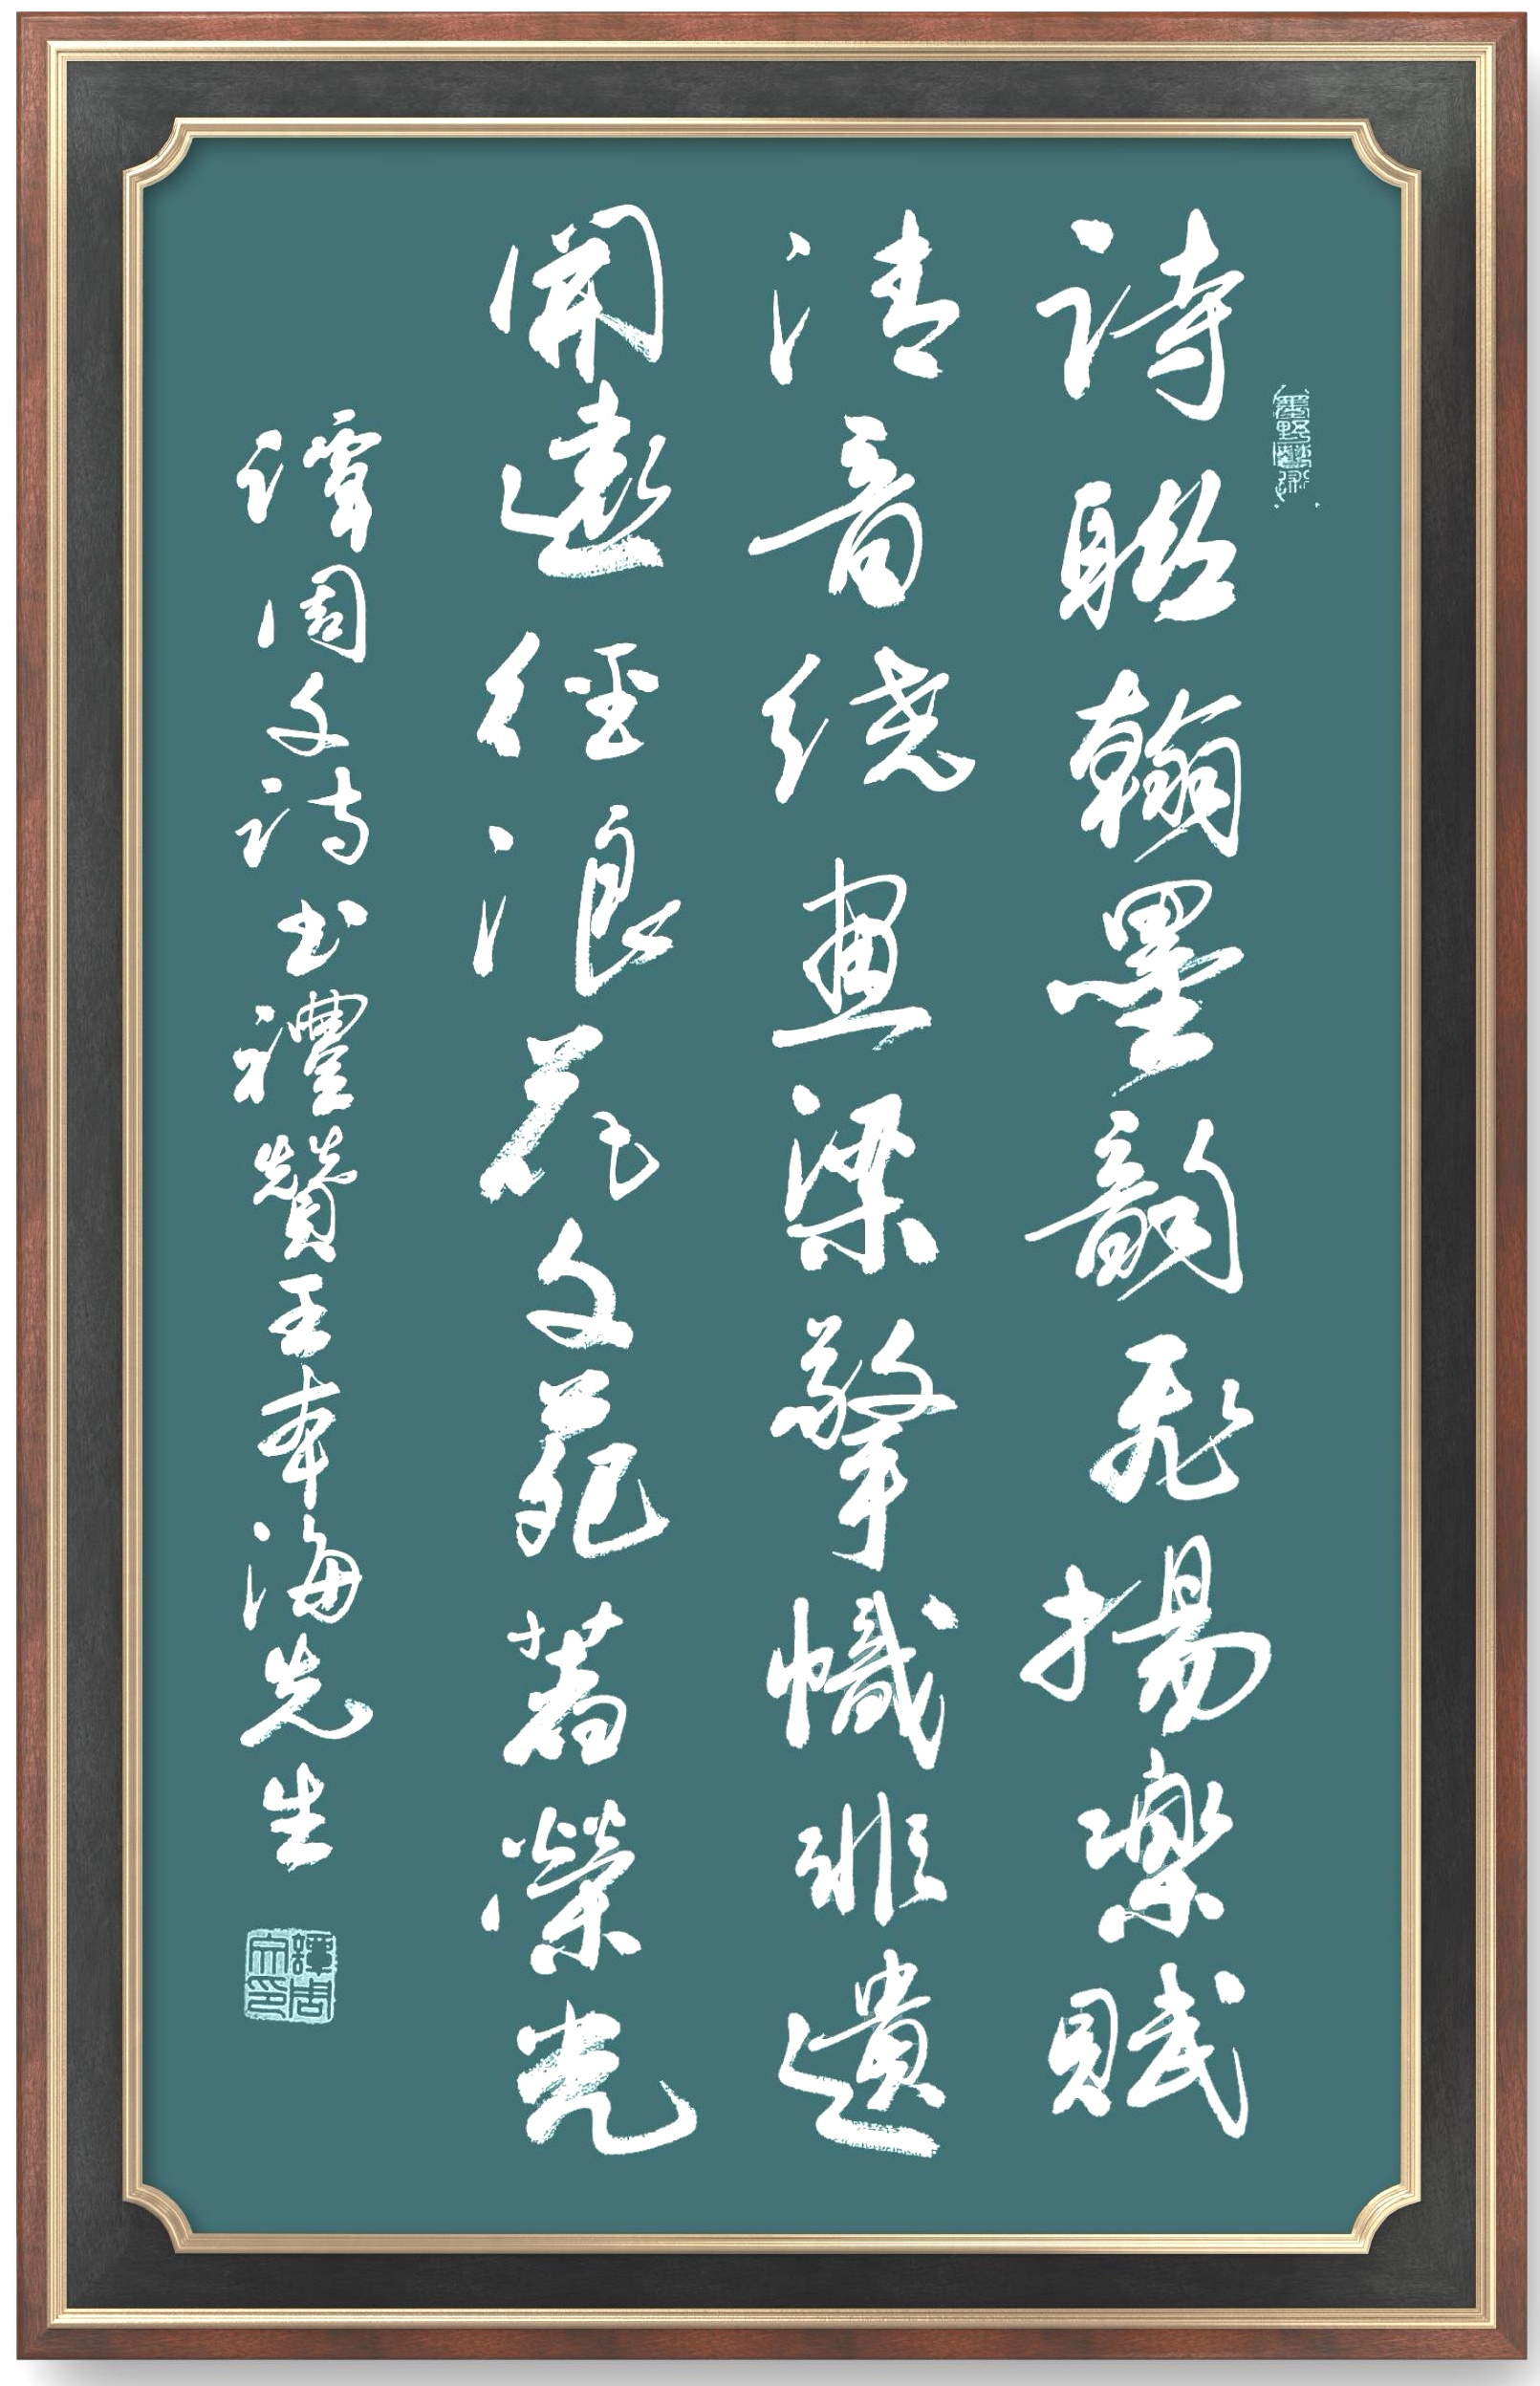 詩聯翰墨韻飛揚樂賦
清音繞畫梁擎幟非遺
開遠徑浪花文苑著榮光
譚周文詩書禮贊王本海先生
譚周文印